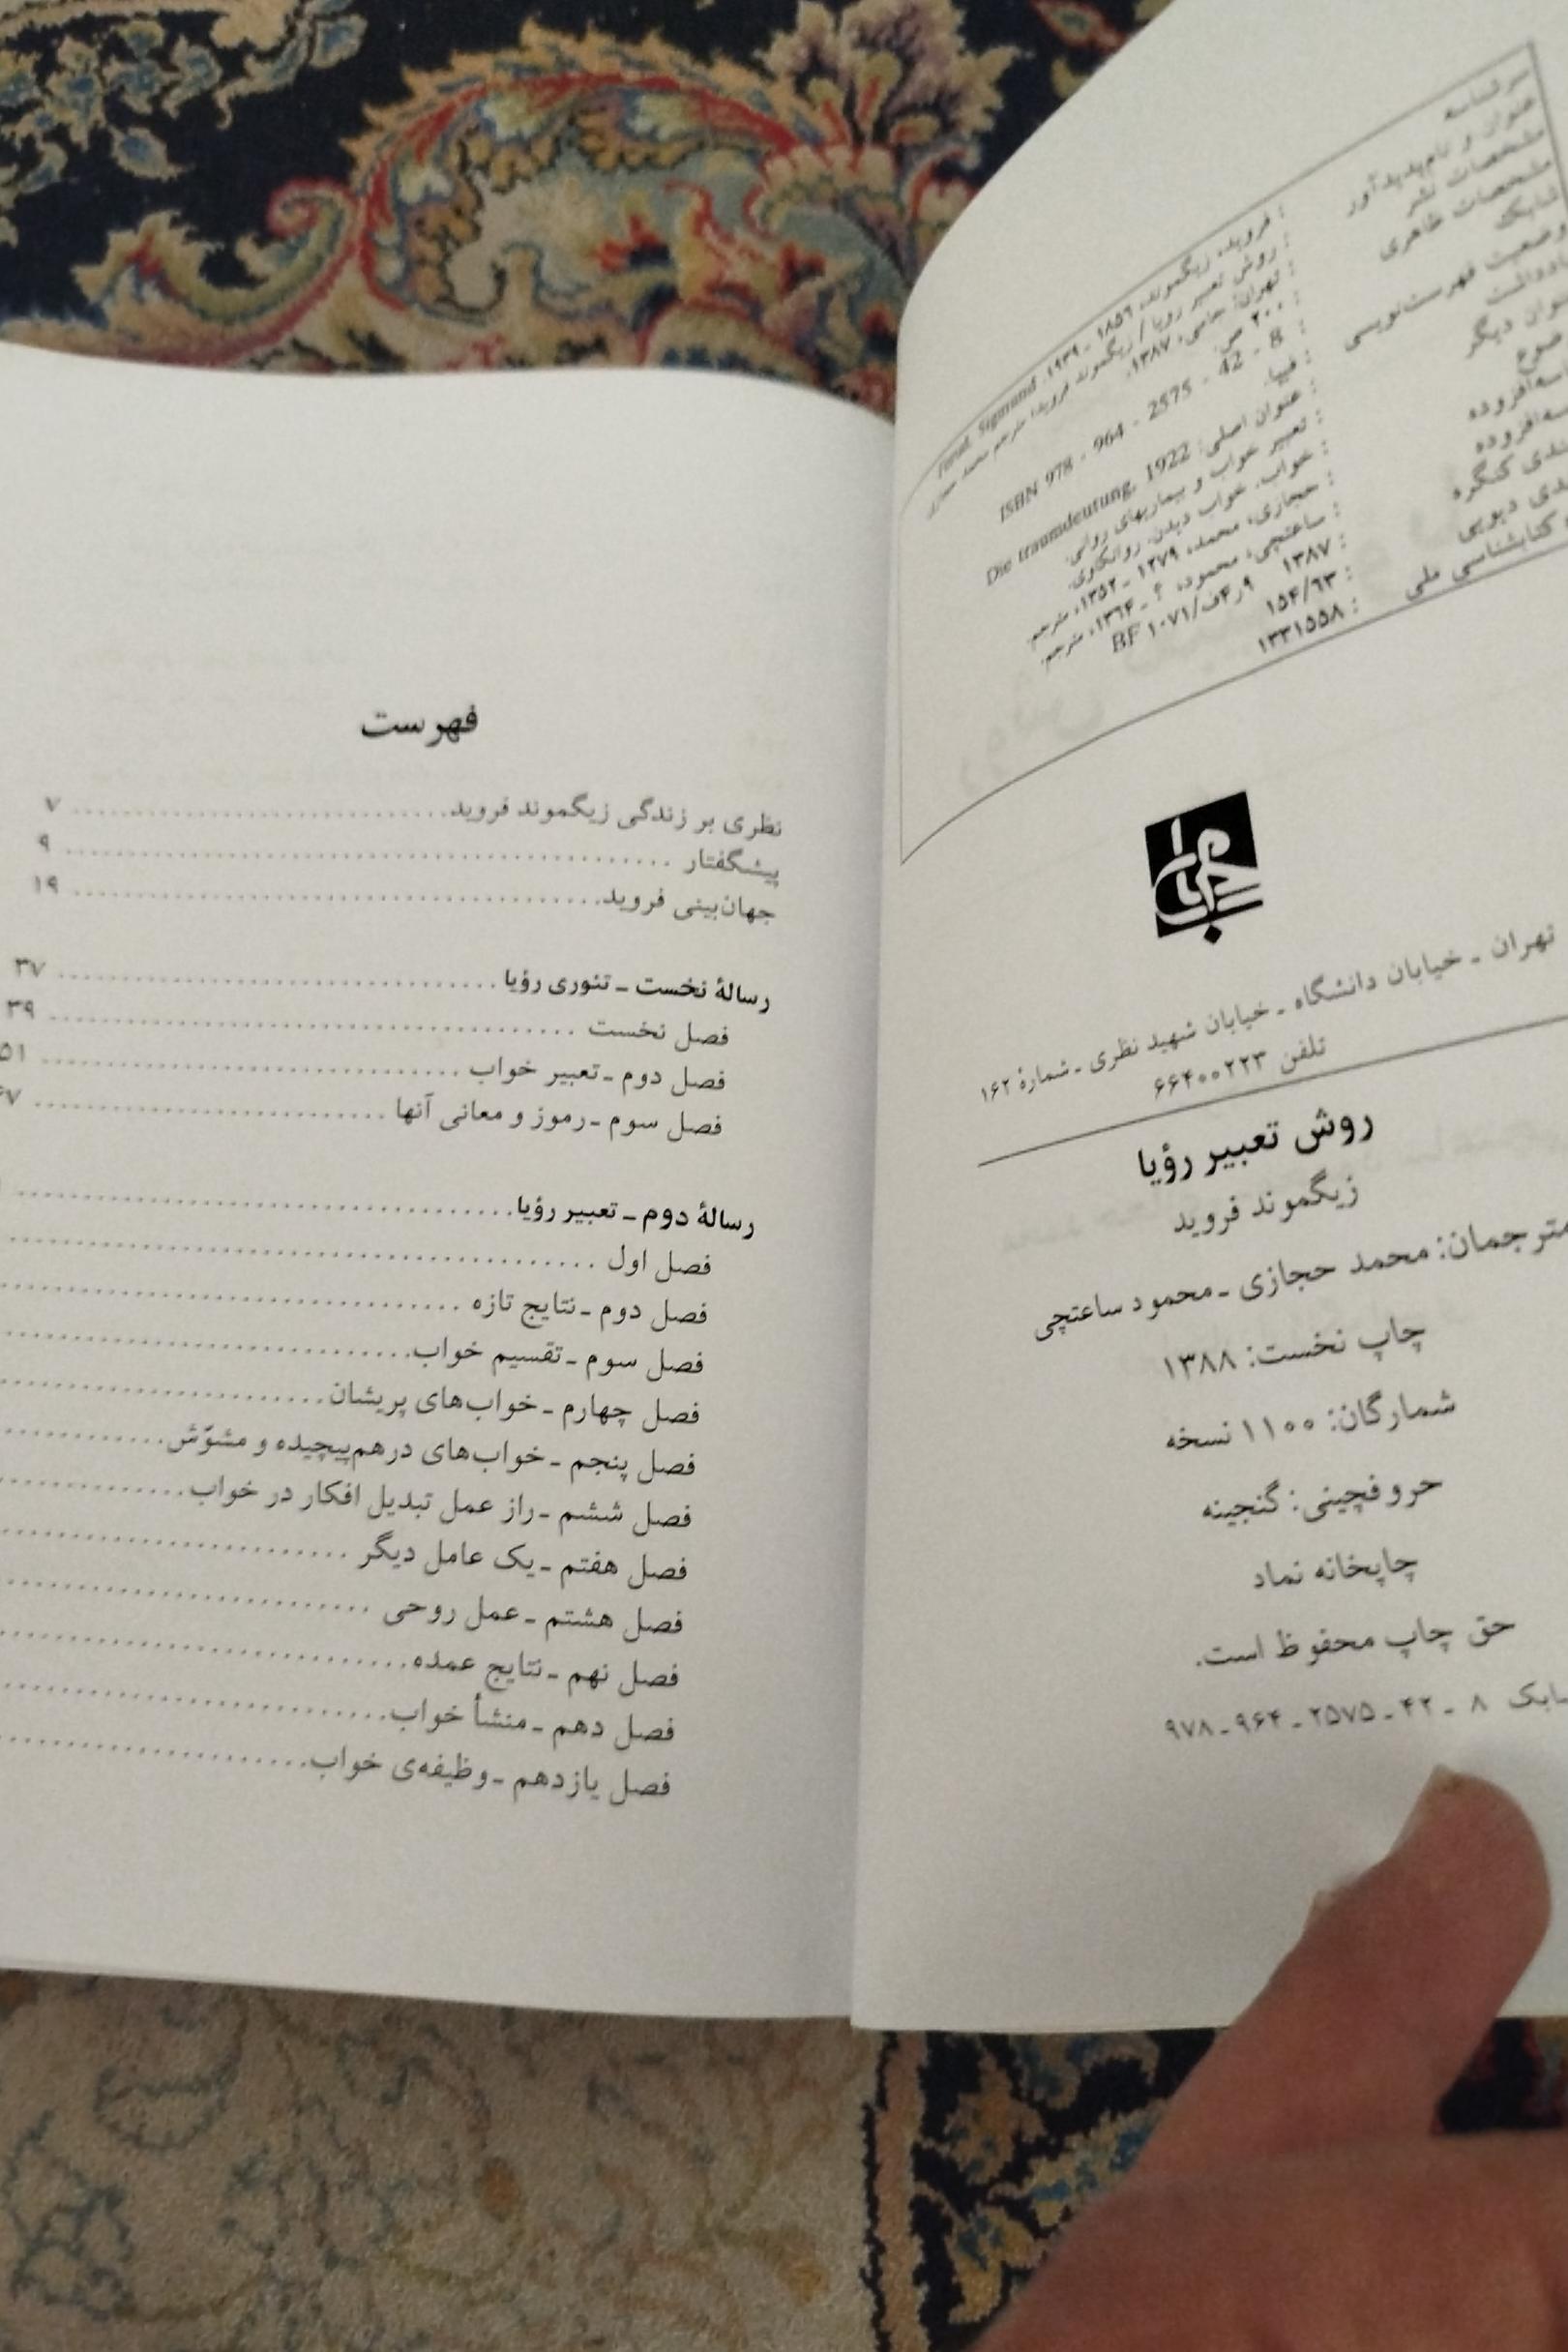 سرشناسه : فروید، زیگموند، ۱۸۵۶ ـ ۱۹۳۹. Freud, Sigmund
عنوان و نام‌پدیدآور : روش تعبیر رویا / زیگموند فروید؛ مترجم محمد حجازی
مشخصات نشر : تهران: جامی، ۱۳۸۷.
مشخصات ظاهری : ۲۰۰ ص.
شابک : ISBN 978 - 964 - 2575 - 42 - 8
وضعیت فهرست‌نویسی : فیپا.
یادداشت : عنوان اصلی: Die traumdeutung, 1922
عنوان دیگر : تعبیر خواب و بیماریهای روانی.
موضوع : خواب. خواب دیدن. روانکاوی.
شناسه‌افزوده : حجازی، محمد، ۱۲۷۹ ـ ۱۳۵۲، مترجم.
شناسه‌افزوده : ساعتچی، محمود، ؟ ـ ۱۳۶۴، مترجم.
بندی کنگره : ۱۳۸۷ ۹ر۴ف/۱۰۷۱ BF
بندی دیویی : ۱۵۴/۶۳
کتابشناسی ملی : ۱۳۳۱۵۵۸
جامی
تهران ـ خیابان دانشگاه ـ خیابان شهید نظری ـ شمارهٔ ۱۶۲
تلفن ۶۶۴۰۰۲۲۳
روش تعبیر رؤیا
زیگموند فروید
مترجمان: محمد حجازی ـ محمود ساعتچی
چاپ نخست: ۱۳۸۸
شمارگان: ۱۱۰۰ نسخه
حروفچینی: گنجینه
چاپخانه نماد
حق چاپ محفوظ است.
شابک ۸ ـ ۴۲ ـ ۲۵۷۵ ـ ۹۶۴ ـ ۹۷۸
فهرست
نظری بر زندگی زیگموند فروید ........ ۷
پیشگفتار ........ ۹
جهان‌بینی فروید ........ ۱۹
رسالهٔ نخست ـ تئوری رؤیا ........ ۳۷
فصل نخست ........ ۳۹
فصل دوم ـ تعبیر خواب ........ ۵۱
فصل سوم ـ رموز و معانی آنها ........ ۶۷
رسالهٔ دوم ـ تعبیر رؤیا ........
فصل اول ........
فصل دوم ـ نتایج تازه ........
فصل سوم ـ تقسیم خواب ........
فصل چهارم ـ خواب‌های پریشان ........
فصل پنجم ـ خواب‌های درهم‌پیچیده و مشوّش ........
فصل ششم ـ راز عمل تبدیل افکار در خواب ........
فصل هفتم ـ یک عامل دیگر ........
فصل هشتم ـ عمل روحی ........
فصل نهم ـ نتایج عمده ........
فصل دهم ـ منشأ خواب ........
فصل یازدهم ـ وظیفه‌ی خواب ........